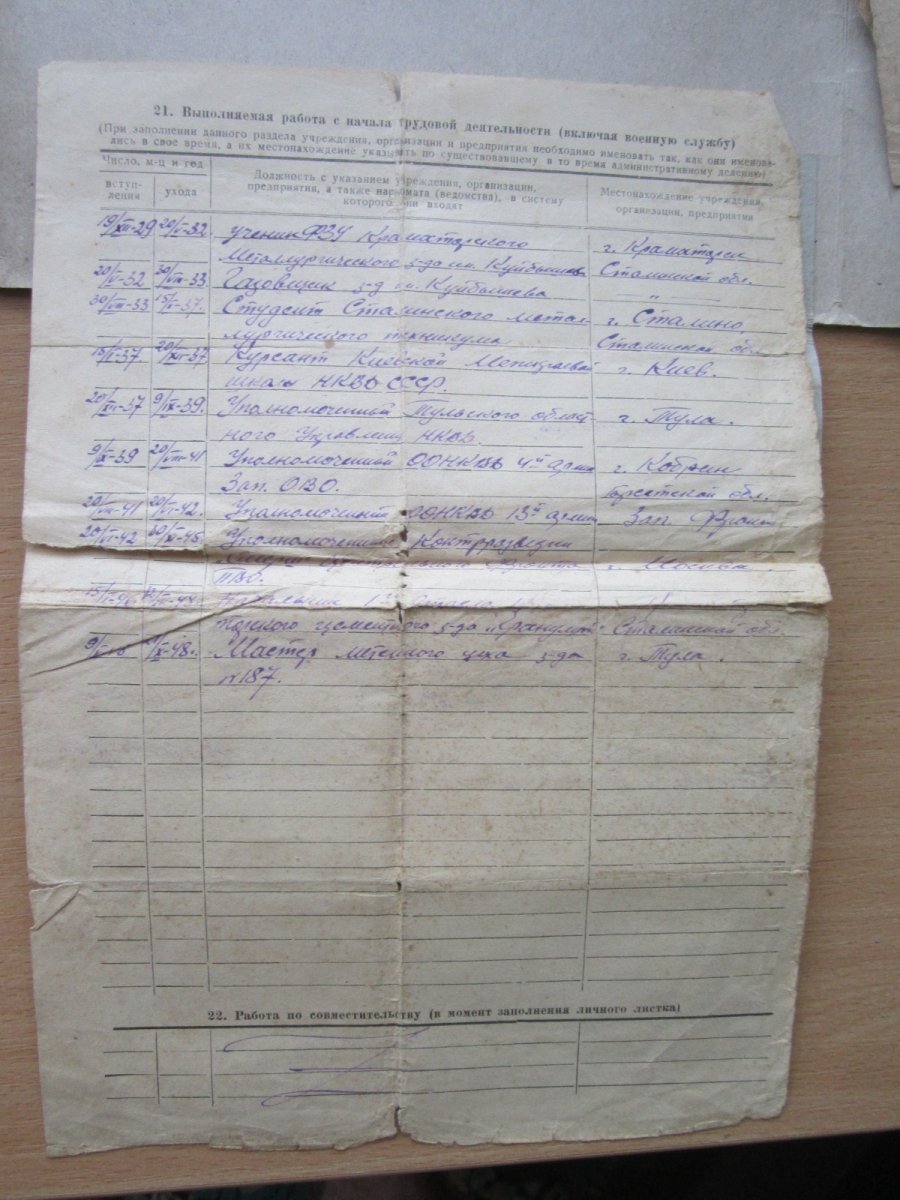 21. Выполняемая работа с начала трудовой деятельности (включая военную службу)
(При заполнении данного раздела учреждения, организации и предприятия необходимо именовать так, как они именова-
лись в свое время, а их местонахождение указывать по существовавшему в то время административному делению)
Число, м-ц и год
вступ-
ления
ухода
Должность с указанием учреждения, организации,
предприятия, а также наркомата (ведомства), в систему
которого они входят
Местонахождение учреждения,
организации, предприятия
19/XII-29 20/V-32. ученик ФЗУ Краматорского г. Краматорск
Металлургического з-да им. Куйбышева Сталинской обл.
20/V-32 30/VIII-33 Газовщик з-д им. Куйбышева —"—
30/VIII-33 15/V-37. Студент Сталинского метал- г. Сталино,
лургического техникума Сталинской обл.
15/V-37. 20/XII-37 Курсант Киевской Межкраевой г. Киев.
школы НКВД СССР.
20/XII-37 9/IX-39. Уполномоченный Тульского област- г. Тула.
ного Управлен. НКВД.
9/IX-39 20/VIII-41 Уполномоченный ООНКВД 4й армии г. Кобрин
Зап. ОВО. Брестской обл.
20/VIII-41 20/VI-42. Уполномоченный ООНКВД 13й армии Зап. Фронт
20/VI-42 Уполномоченный Контрразведки
Фронта г. Москва.
ПВО.
Начальник 1го отдела
цементного з-да Сталинской обл.
/X-48. Мастер литейного цеха з-да г. Тула.
№187.
22. Работа по совместительству (в момент заполнения личного листка)